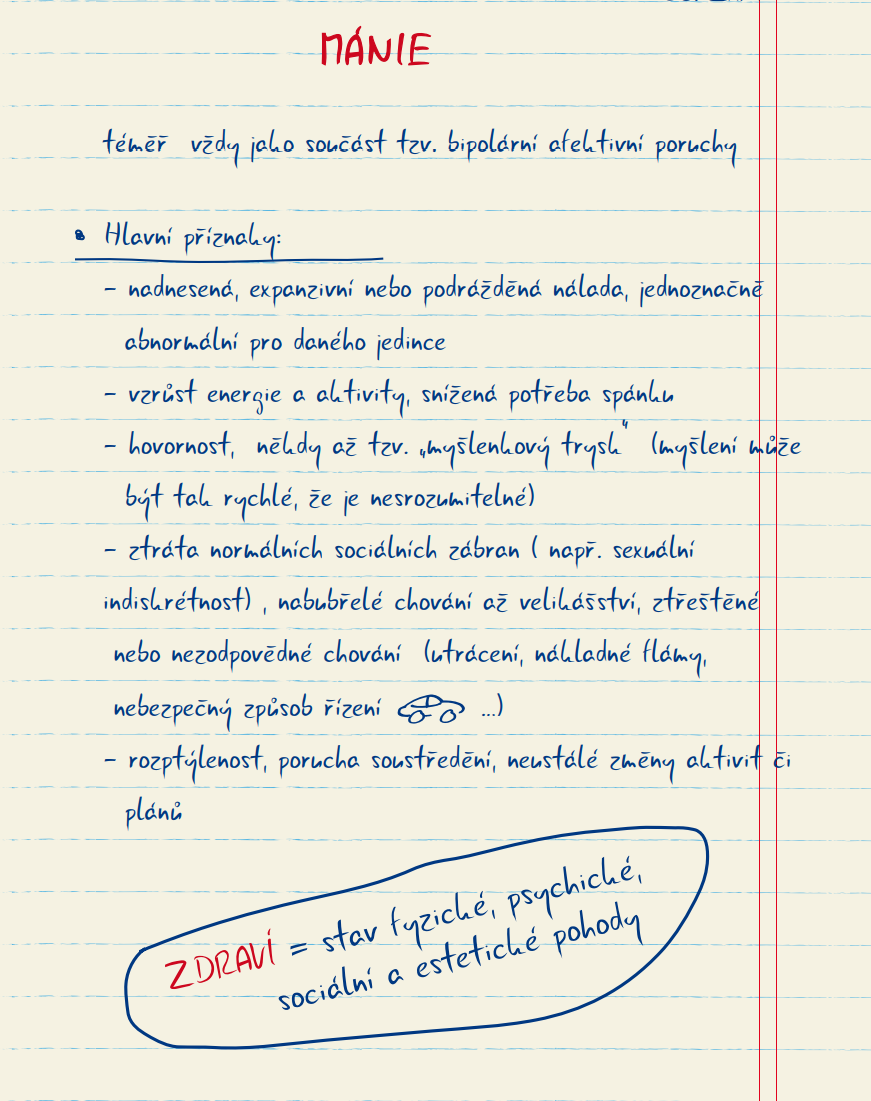 MÁNIE
téměř vždy jako součást tzv. bipolární afektivní poruchy
• Hlavní příznaky:
- nadnesená, expanzivní nebo podrážděná nálada, jednoznačně
abnormální pro daného jedince
- vzrůst energie a aktivity, snížená potřeba spánku
- hovornost, někdy až tzv. „myšlenkový trysk" (myšlení může
být tak rychlé, že je nesrozumitelné)
- ztráta normálních sociálních zábran ( např. sexuální
indiskrétnost) , nabubřelé chování až velikášství, ztřeštěné
nebo nezodpovědné chování (utrácení, nákladné flámy,
nebezpečný způsob řízení ...)
- rozptýlenost, porucha soustředění, neustálé změny aktivit či
plánů
ZDRAVÍ = stav fyzické, psychické,
sociální a estetické pohody